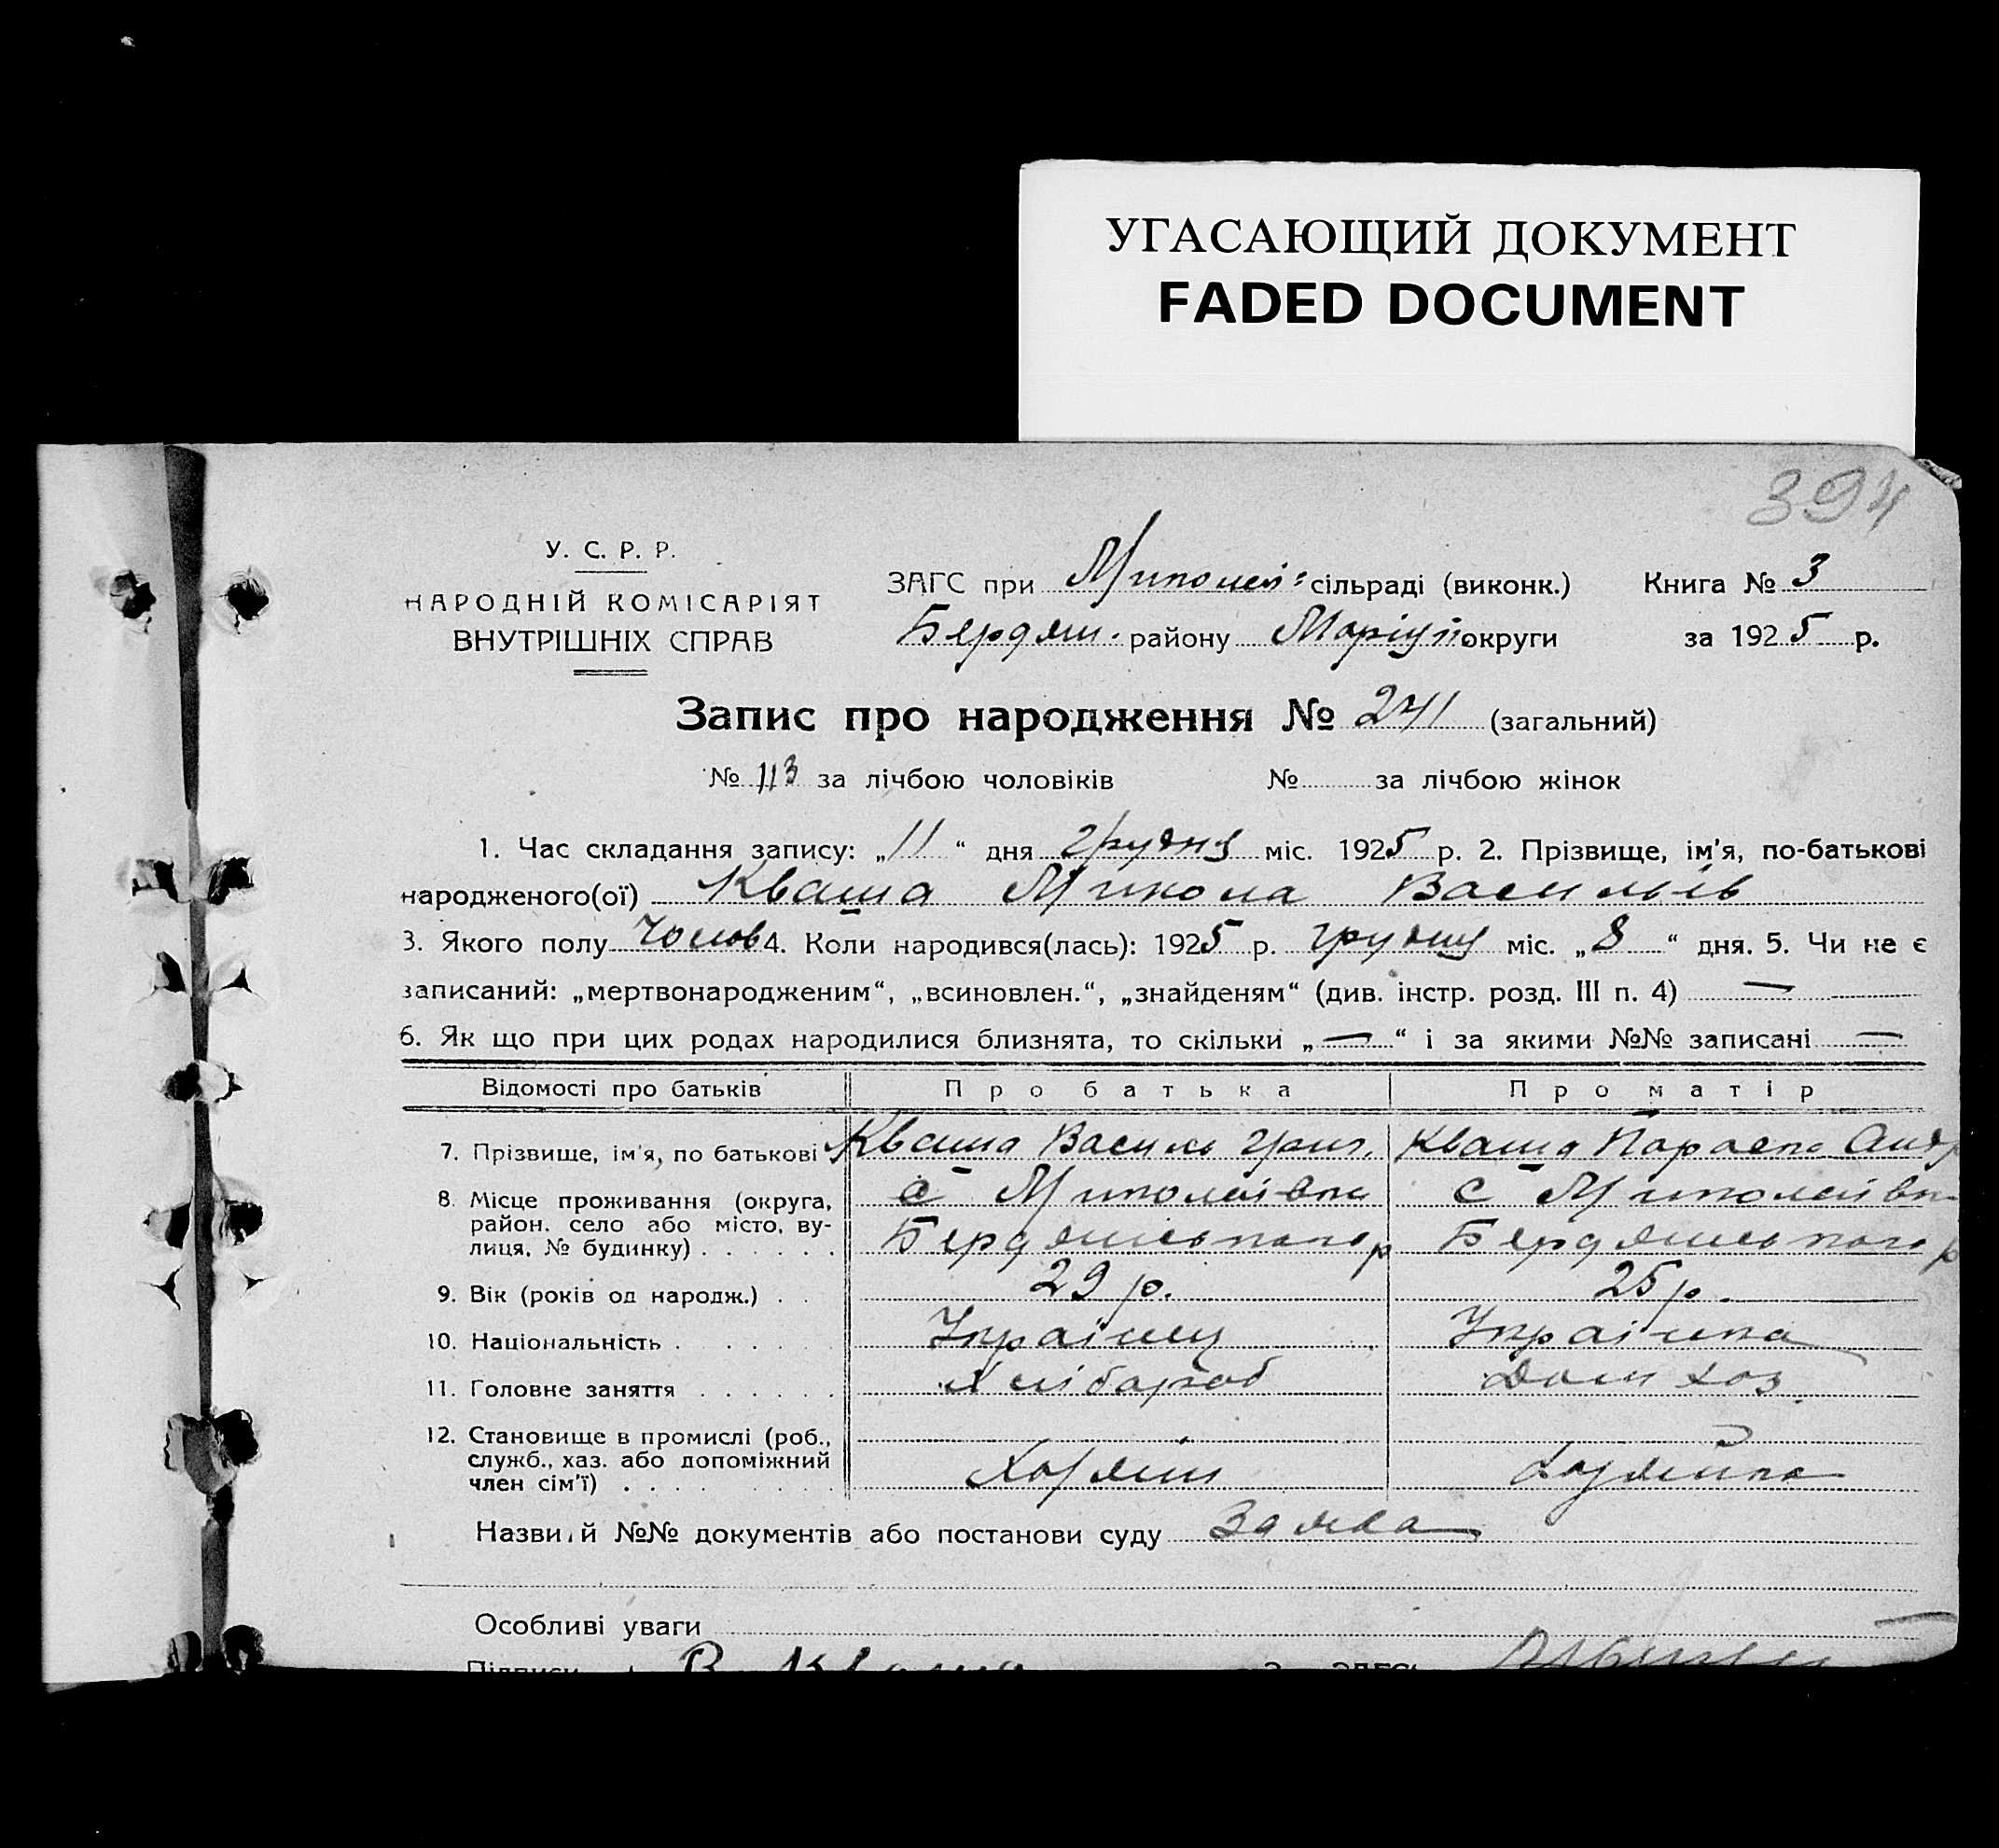 УГАСАЮЩИЙ ДОКУМЕНТ
FADED DOCUMENT
394
У. С. Р. Р.
НАРОДНІЙ КОМІСАРІЯТ
ВНУТРІШНІХ СПРАВ
ЗАГС при Миколаї: сільраді (виконк.) Книга № 3
Бердян. району Маріуп. округи за 1925 р.
Запис про народження № 241 (загальний)
№ 113 за лічбою чоловіків № за лічбою жінок
1. Час складання запису: „11“ дня грудня міс. 1925 р. 2. Прізвище, ім'я, по-батькові
народженого(ої) Кваша Микола Васильів
3. Якого полу Чолов 4. Коли народився(лась): 1925 р. грудня міс. „8“ дня. 5. Чи не є
записаний: „мертвонародженим“, „всиновлен.“, „знайденям“ (див. інстр. розд. III п. 4) —
6. Як що при цих родах народилися близнята, то скільки „—“ і за якими №№ записані —
Відомості про батьків Про батька Про матір
7. Прізвище, ім'я, по батькові Кваша Василь Григ. Кваша Параска Андр
8. Місце проживання (округа, район, село або місто, ву-лиця, № будинку) . . . . . . с Миколаївка Бердянського р с Миколаївка Бердянського р
9. Вік (років од народж.) . . 29 р. 25 р.
10. Національність . . . . . Українец Українка
11. Головне заняття . . . . . Хлібороб Дом хоз.
12. Становище в промислі (роб., служб., хаз. або допоміжний член сім'ї) . . . . Хазяїн Хазяйка
Назви й №№ документів або постанови суду Заява
Особливі уваги —
Підписи В. Кваша